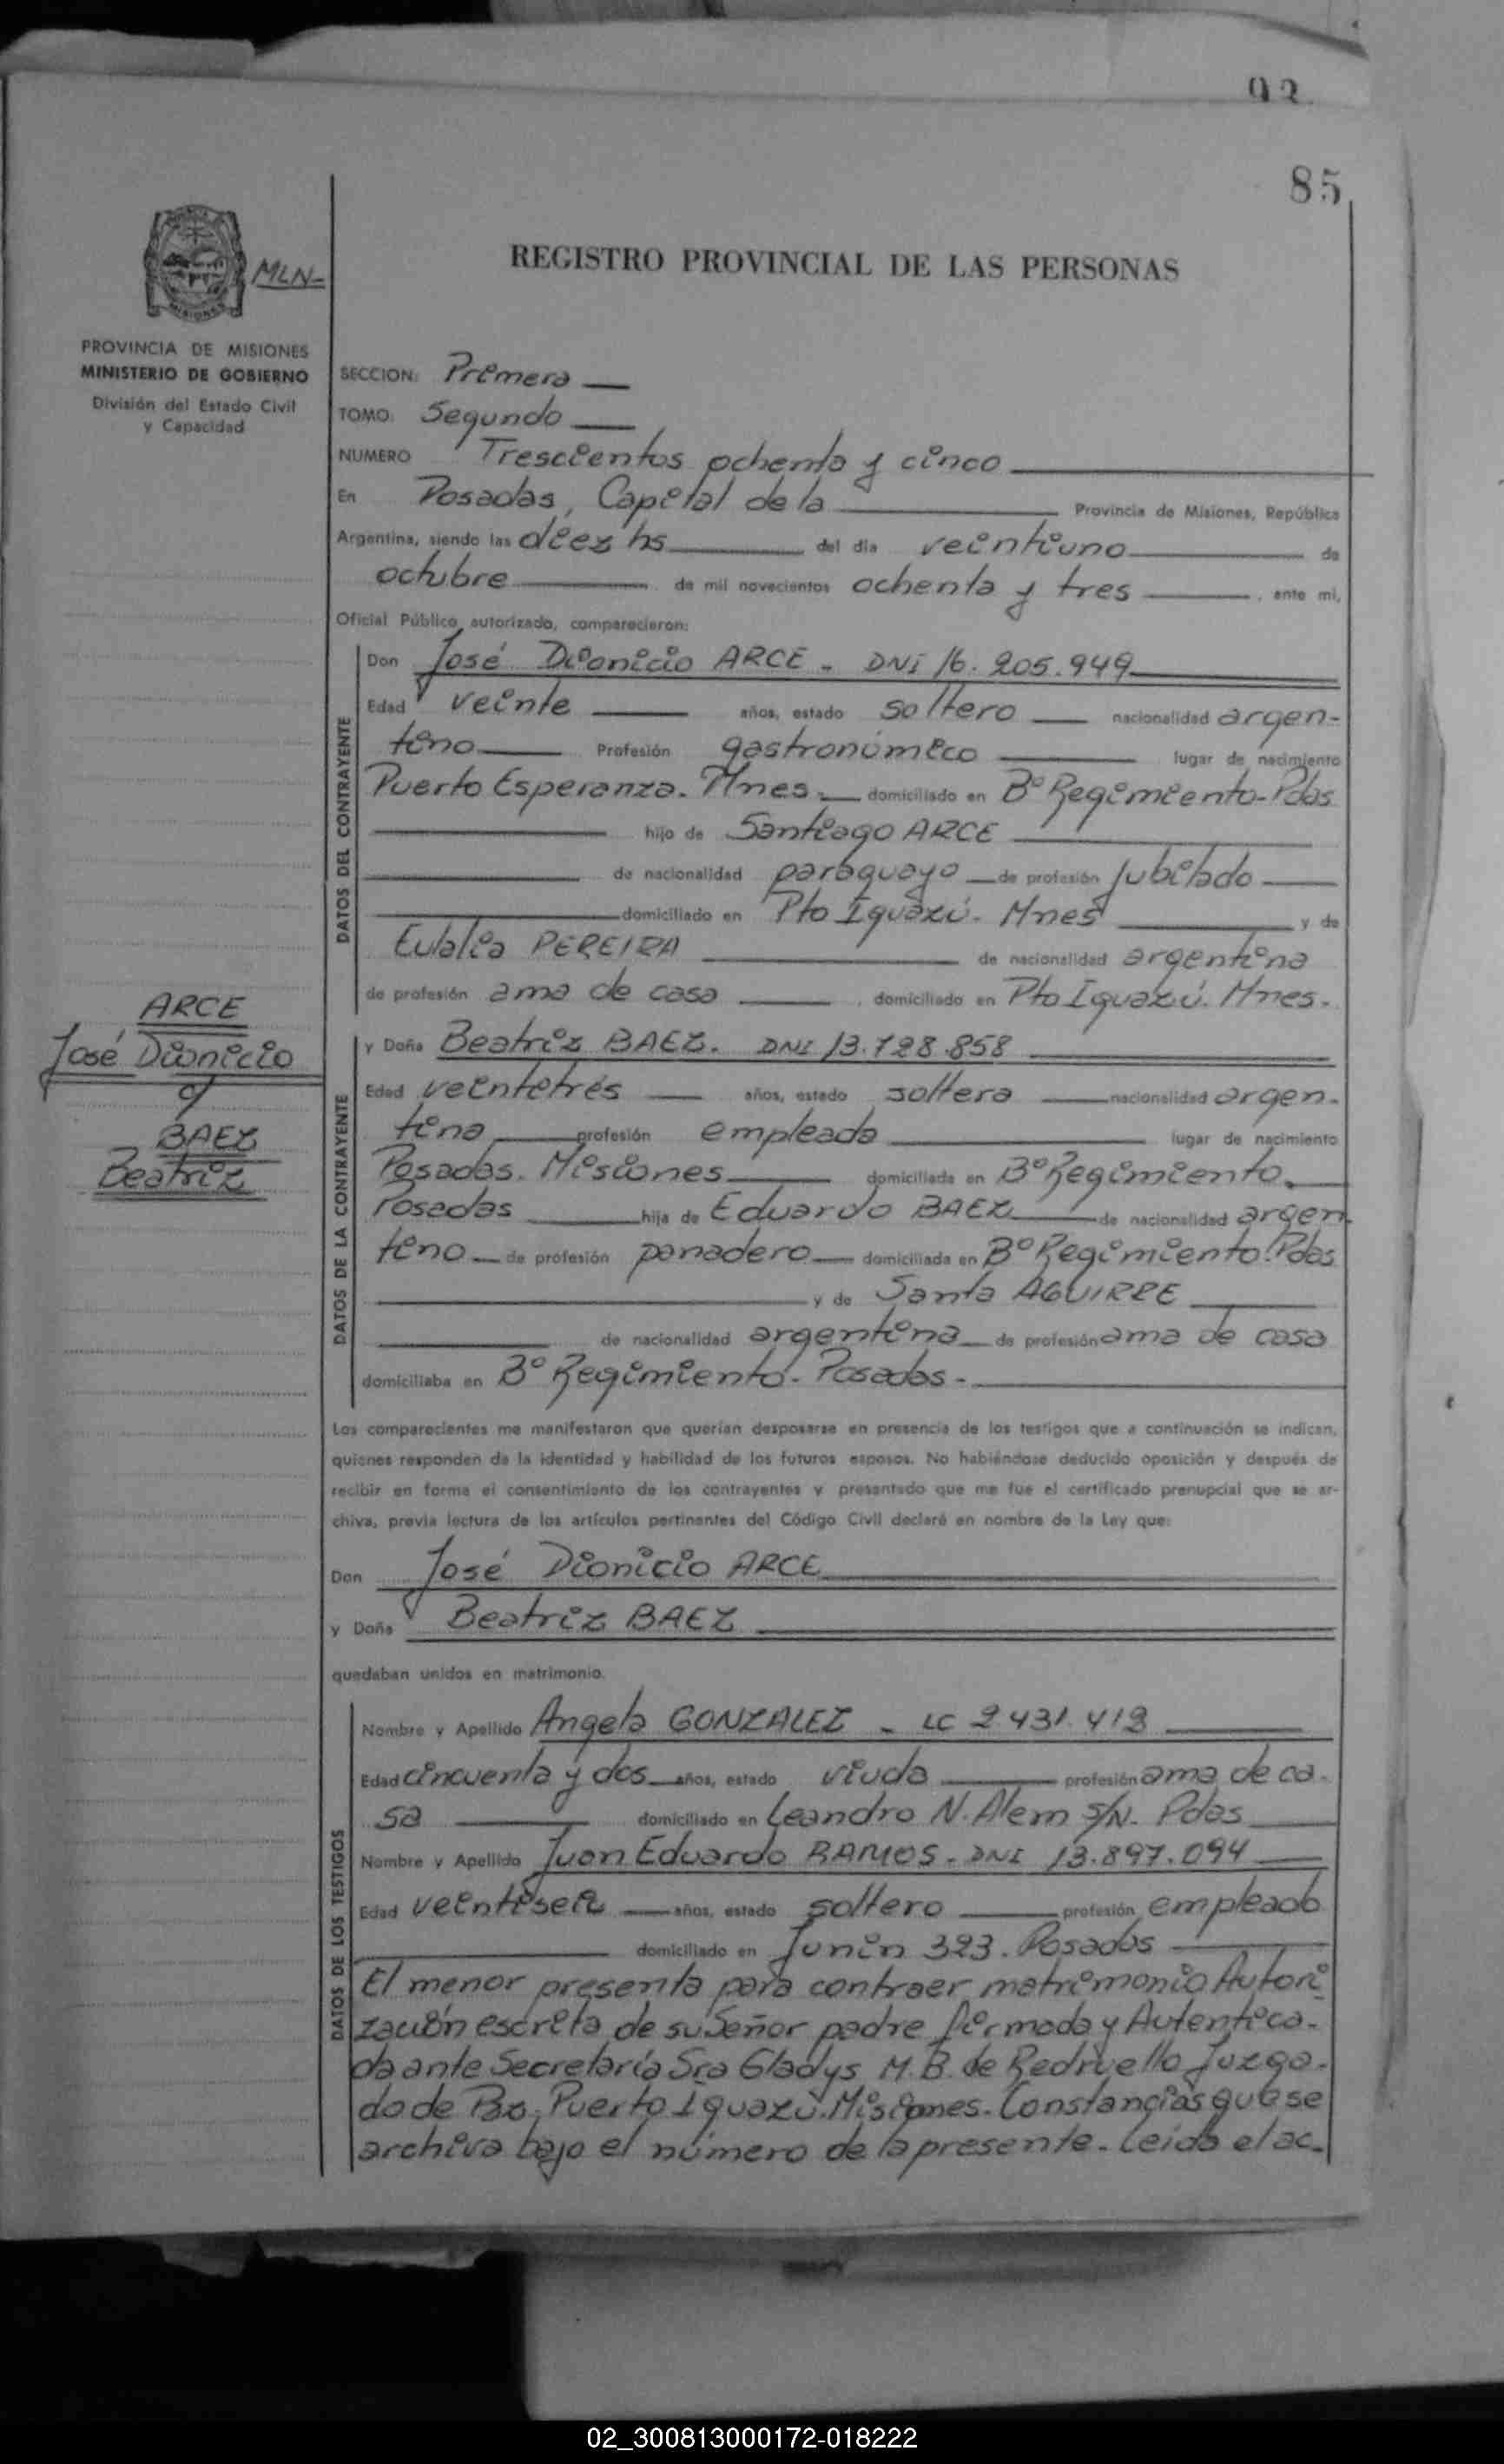 85
MLN-
REGISTRO PROVINCIAL DE LAS PERSONAS
PROVINCIA DE MISIONES
MINISTERIO DE GOBIERNO
División del Estado Civil
y Capacidad
SECCION: Primera
TOMO: Segundo
NUMERO Trescientos ochenta y cinco
En Posadas, Capital de la Provincia de Misiones, República
Argentina, siendo las diez hs del día veintiuno de
octubre de mil novecientos ochenta y tres, ante mi,
Oficial Público autorizado, comparecieron:
DATOS DEL CONTRAYENTE
Don José Dionicio ARCE - DNI 16.205.949
Edad veinte años, estado soltero nacionalidad argen-
tino Profesión gastronómico lugar de nacimiento
Puerto Esperanza. Mnes. domiciliado en Bº Regimiento-Pdas
hijo de Santiago ARCE
de nacionalidad paraguayo de profesión jubilado
domiciliado en Pto Iguazú. Mnes y de
Eulalia PEREIRA de nacionalidad argentina
de profesión ama de casa, domiciliado en Pto Iguazú. Mnes.
ARCE
José Dionicio
c/
BAEZ
Beatriz
DATOS DE LA CONTRAYENTE
y Doña Beatriz BAEZ. DNI 13.728.858
Edad veintitrés años, estado soltera nacionalidad argen-
tina profesión empleada lugar de nacimiento
Posadas. Misiones domiciliada en Bº Regimiento.
Posadas hija de Eduardo BAEZ de nacionalidad argen
tino de profesión panadero domiciliada en Bº Regimiento. Pdas
y de Santa AGUIRRE
de nacionalidad argentina de profesión ama de casa
domiciliaba en Bº Regimiento. Posadas.
Los comparecientes me manifestaron que querían desposarse en presencia de los testigos que a continuación se indican,
quienes responden de la identidad y habilidad de los futuros esposos. No habiéndose deducido oposición y después de
recibir en forma el consentimiento de los contrayentes y presentado que me fue el certificado prenupcial que se ar-
chiva, previa lectura de los artículos pertinentes del Código Civil declaré en nombre de la Ley que:
Don José Dionicio ARCE
y Doña Beatriz BAEZ
quedaban unidos en matrimonio.
DATOS DE LOS TESTIGOS
Nombre y Apellido Angela GONZALEZ - LC 2.431.418
Edad cincuenta y dos años, estado viuda profesión ama de ca-
sa domiciliado en Leandro N. Alem S/N. Pdas
Nombre y Apellido Juan Eduardo RAMOS. DNI 13.897.094
Edad veintiseis años, estado soltero profesión empleado
domiciliado en Junín 323. Posadas
El menor presenta para contraer matrimonio Autori
zación escrita de su Señor padre firmada y Autentica-
da ante Secretaría Sra Gladys M.B. de Redruello Juzga-
do de Paz. Puerto Iguazú. Misiones. Constancias que se
archiva bajo el número de la presente. Leida el ac-
02_300813000172-018222